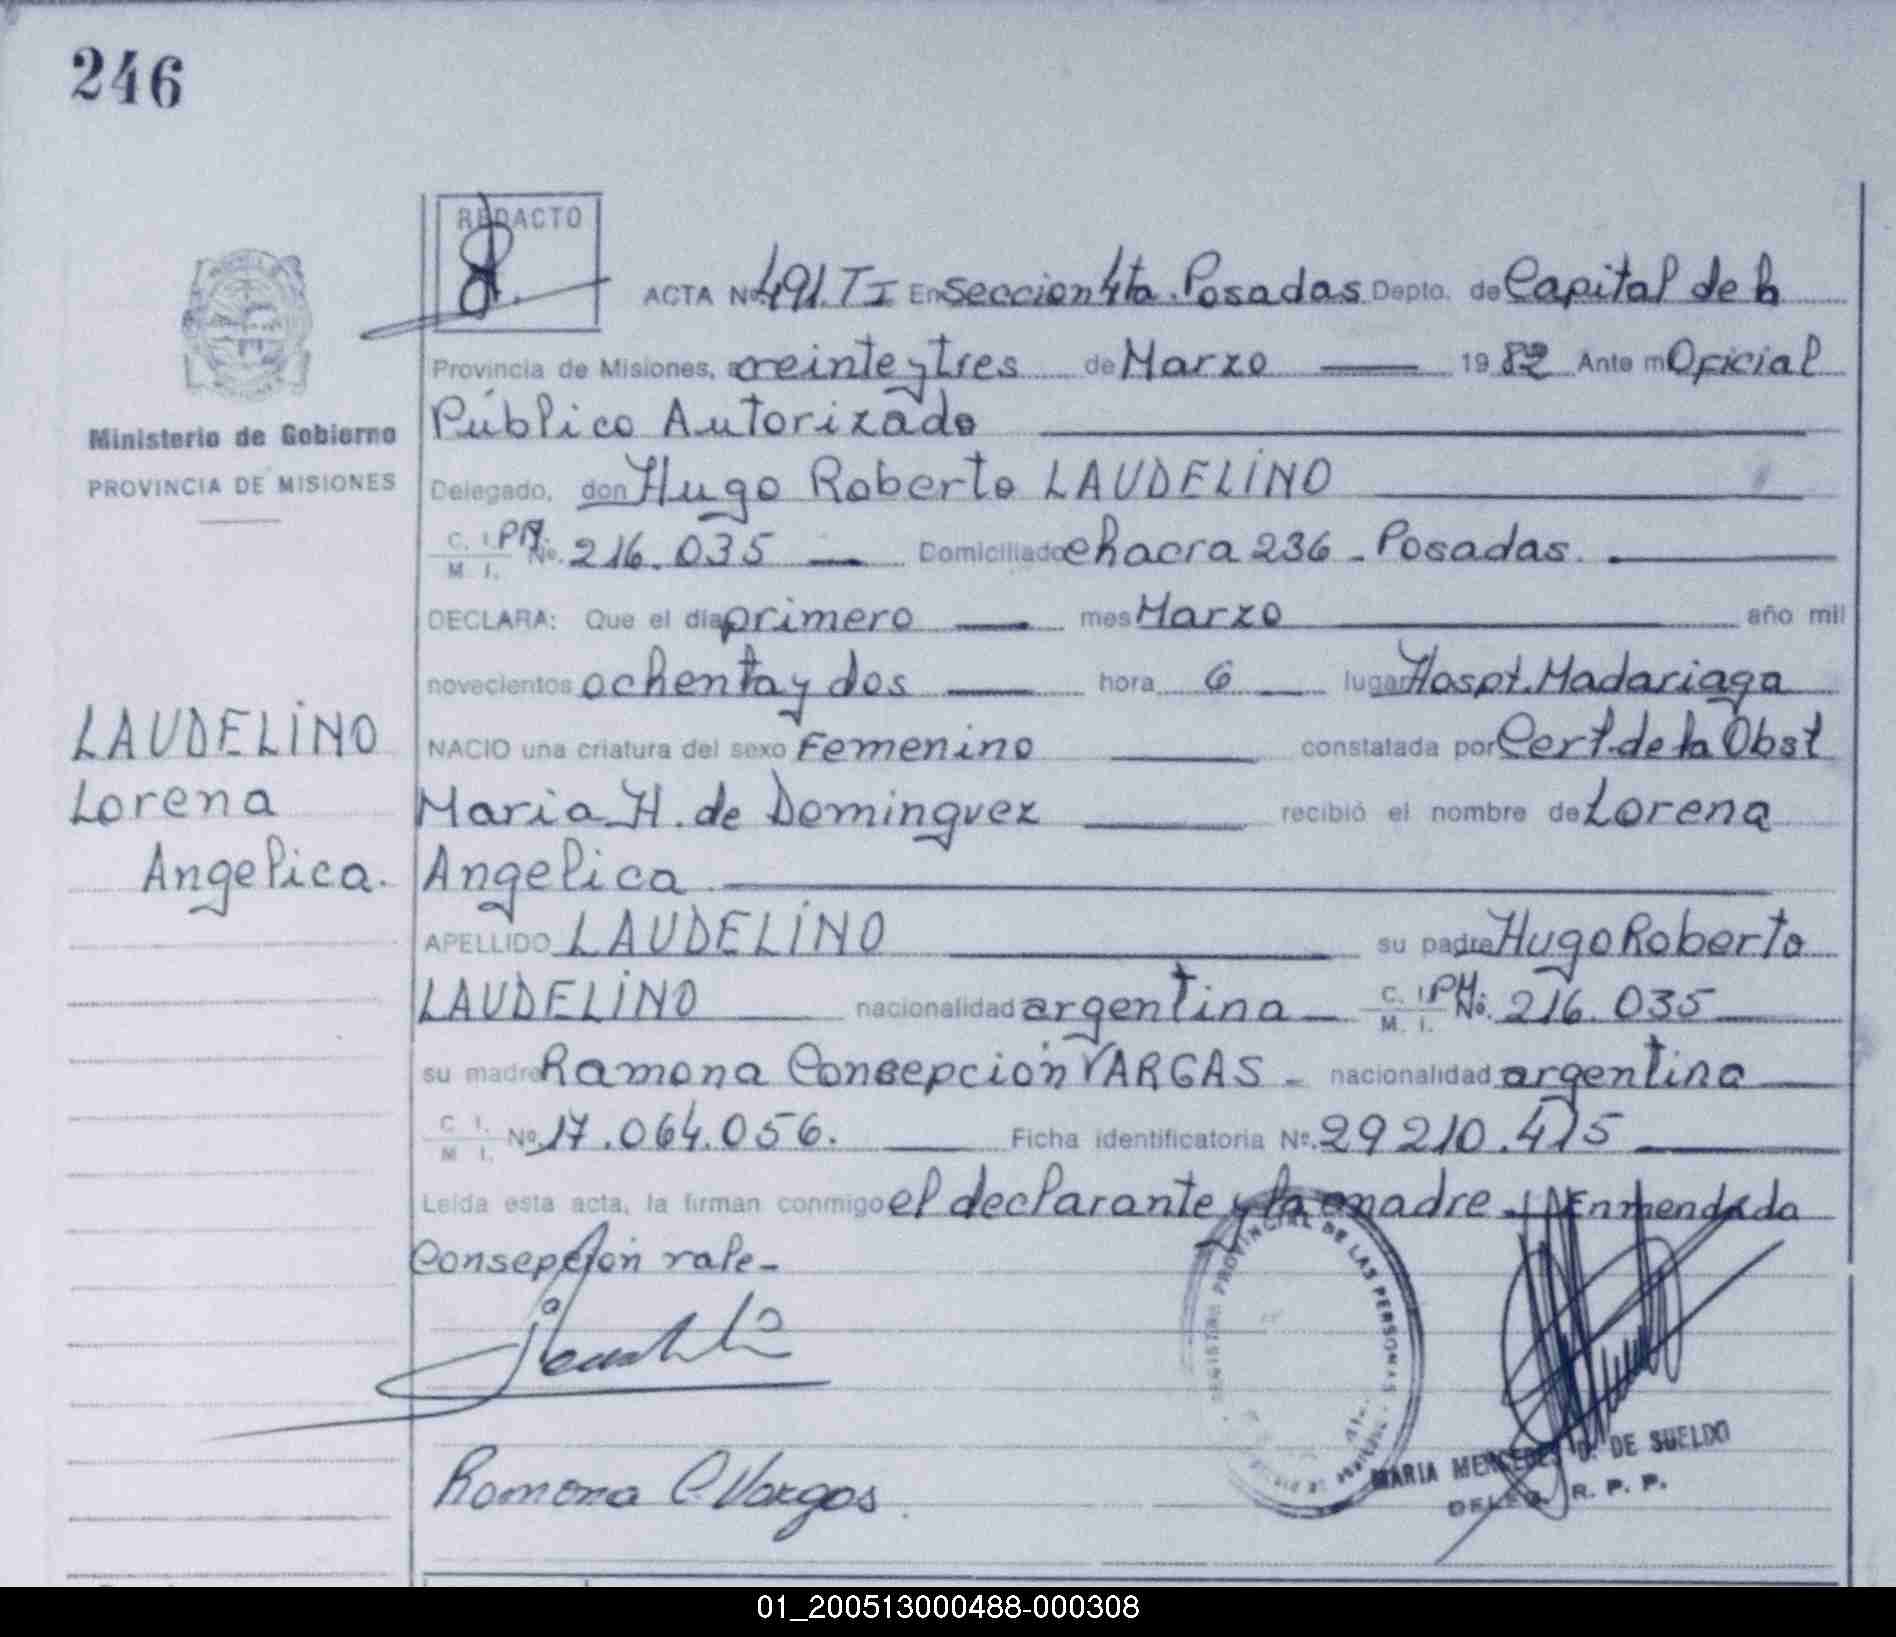 246
REDACTO
ACTA Nº 491. T I En Seccion 4ta. Posadas Depto. de Capital de la
Provincia de Misiones, a veinte y tres de Marzo 19 82 Ante mi Oficial
Público Autorizado
Ministerio de Gobierno
PROVINCIA DE MISIONES
Delegado, don Hugo Roberto LAUDELINO
C. I. PM. No. 216.035 Domiciliado chacra 236 - Posadas.
M. I.
DECLARA: Que el día primero mes Marzo año mil
novecientos ochenta y dos hora 6 lugar Hospt. Madariaga
LAUDELINO
NACIO una criatura del sexo Femenino constatada por Cert. de la Obst
Lorena
Maria H. de Dominguez recibió el nombre de Lorena
Angelica.
Angelica
APELLIDO LAUDELINO su padre Hugo Roberto
LAUDELINO nacionalidad argentina C. I. PM. No. 216.035
M. I.
su madre Ramona Consepción VARGAS - nacionalidad argentina
C. I. Nº 17.064.056. Ficha identificatoria Nº. 29210.415
M. I.
Leída esta acta, la firman conmigo el declarante y la madre Enmendada
Consepción vale-
PROVINCIAL DE LAS PERSONAS
Ramona C. Vargas
MARIA MERCEDES D. DE SUELDO
DELEG. R. P. P.
01_200513000488-000308